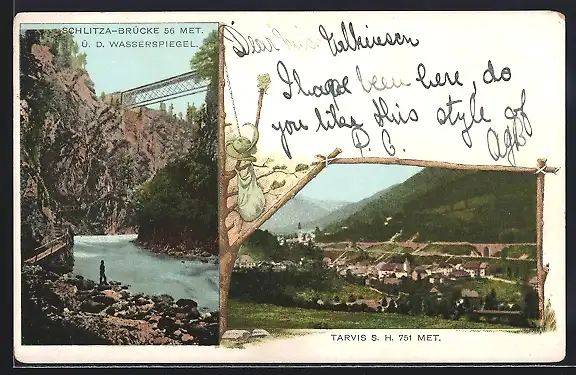 SCHLITZA-BRÜCKE 56 MET.
Ü. D. WASSERSPIEGEL.
Dear Miss
I have been here, do
you like this style of
P. C.
TARVIS S. H. 751 MET.